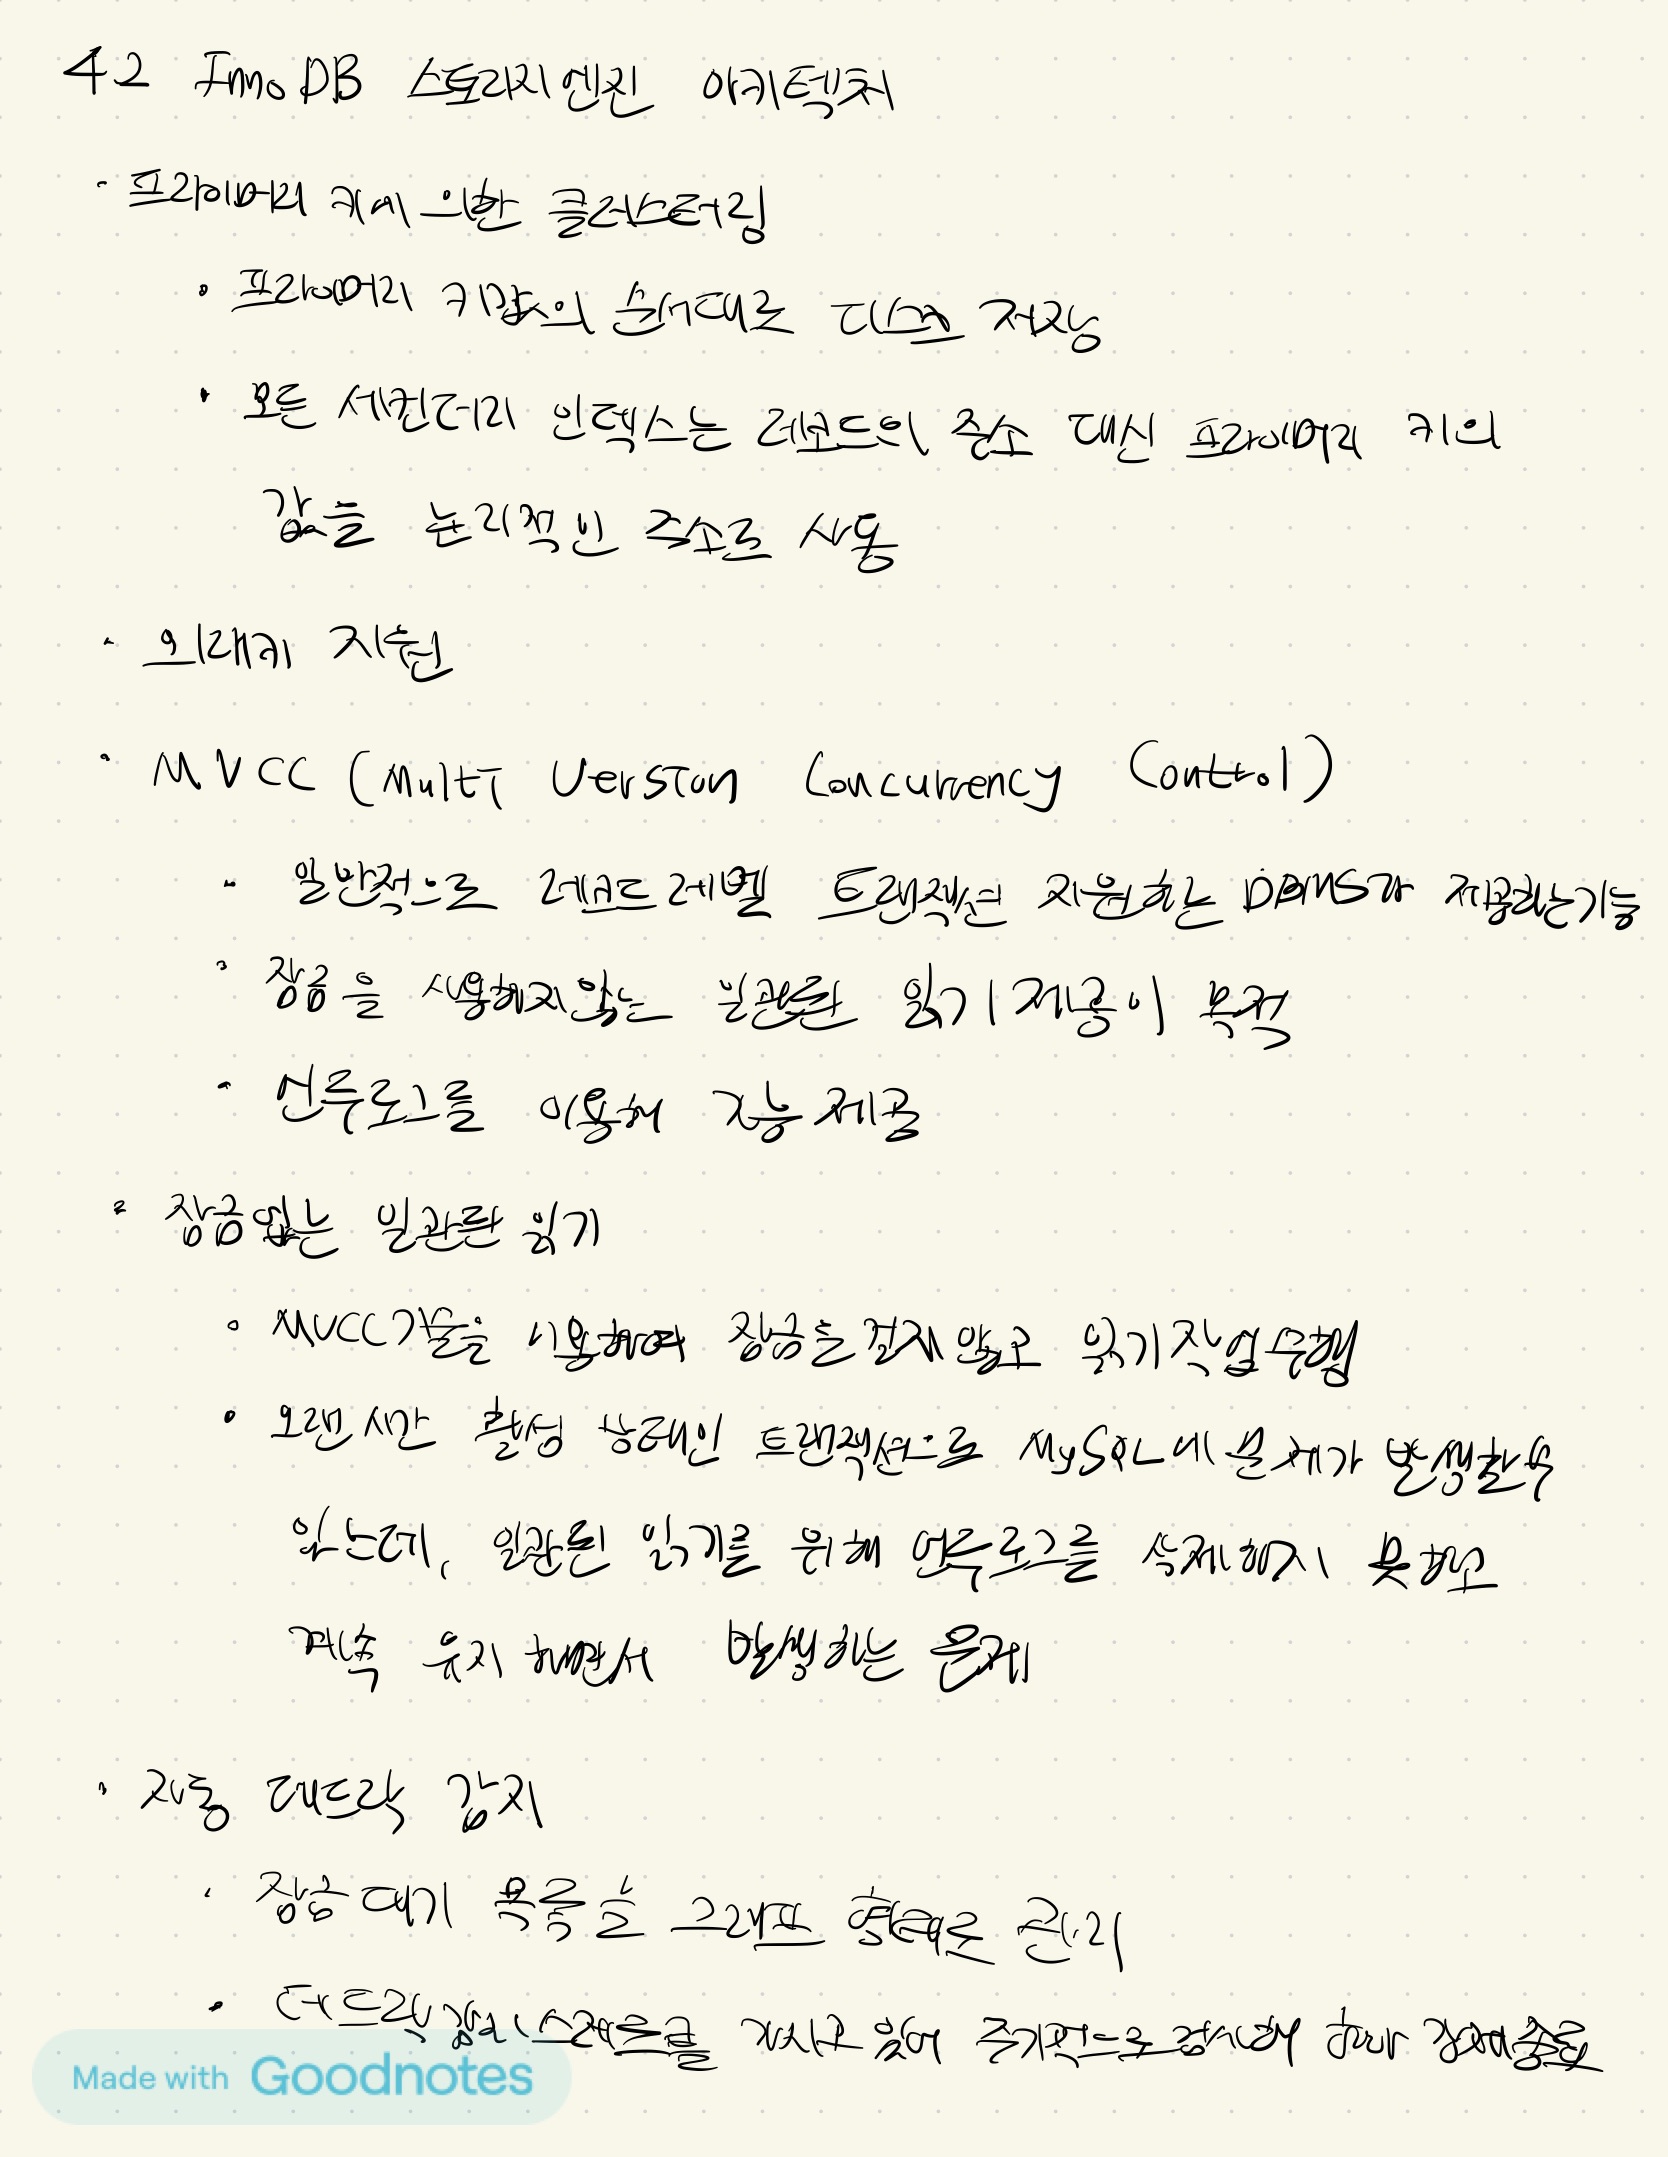 4.2 InnoDB 스토리지 엔진 아키텍처
· 프라이머리 키에 의한 클러스터링
· 프라이머리 키값의 순서대로 디스크 저장
· 모든 세컨더리 인덱스는 레코드의 주소 대신 프라이머리 키의
값을 논리적인 주소로 사용
· 외래키 지원
· MVCC (Multi Version Concurrency Control)
· 일반적으로 레코드 레벨 트랜잭션 지원하는 DBMS가 제공하는 기능
· 잠금을 사용하지 않는 일관된 읽기 제공이 목적
· 언두로그를 이용해 기능 제공
· 잠금없는 일관된 읽기
· MVCC 기술을 이용하여 잠금을 걸지 않고 읽기 작업 수행
· 오랜 시간 활성 상태인 트랜잭션으로 MySQL에 문제가 발생할 수
있는데, 일관된 읽기를 위해 언두로그를 삭제하지 못하고
계속 유지하면서 발생하는 문제
· 자동 데드락 감지
· 잠금 대기 목록을 그래프 형태로 관리
· 데드락 감지 스레드를 가지고 있어 주기적으로 검사해 하나 강제종료
Made with Goodnotes